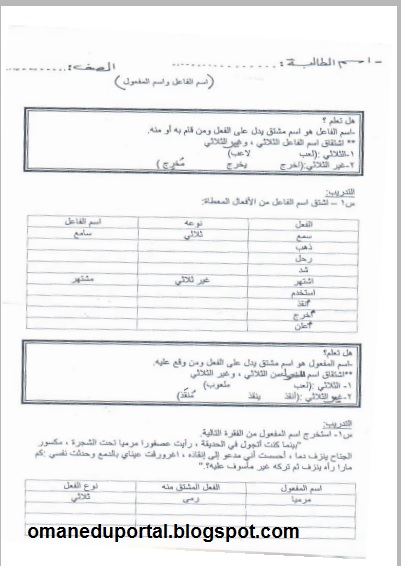 - اسم الطالبة: .................. الصف: ..............
(اسم الفاعل واسم المفعول)
هل تعلم ؟
-اسم الفاعل هو اسم مشتق يدل على الفعل ومن قام به أو منه.
** اشتقاق اسم الفاعل الثلاثي ، وغير الثلاثي
١-الثلاثي :(لعب لاعب)
٢-غير الثلاثي:(اخرج يخرج مُخرج)
التدريب:
س١ – اشتق اسم الفاعل من الأفعال المعطاة:
الفعل نوعه اسم الفاعل
سمع ثلاثي سامع
ذهب
رحل
شد
اشتهر غير ثلاثي مشتهر
استخدم
أنقذ
أخرج
أعلن
هل تعلم؟
-اسم المفعول هو اسم مشتق يدل على الفعل ومن وقع عليه.
**اشتقاق اسم المفعول من الثلاثي ، وغير الثلاثي
١- الثلاثي :(لعب ملعوب)
٢-غير الثلاثي :(أنقذ ينقذ مُنقَذ)
التدريب:
س١- استخرج اسم المفعول من الفقرة التالية.
"بينما كنت أتجول في الحديقة ، رأيت عصفورا مرميا تحت الشجرة ، مكسور
الجناح ينزف دما ، أحسست أني مدعو إلى إنقاذه ، اغرورقت عيناي بالدمع وحدثت نفسي :كم
مارا رآه ينزف ثم تركه غير مأسوف عليه؟."
اسم المفعول الفعل المشتق منه نوع الفعل
مرميا رمى ثلاثي
omaneduportal.blogspot.com